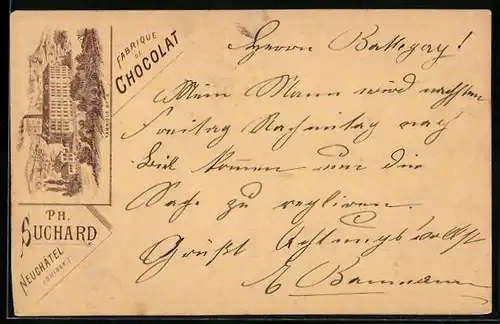 FABRIQUE
DE
CHOCOLAT
PH.
SUCHARD
NEUCHÂTEL
(SUISSE)
Herrn Battegay!
Mein Mann wird nächsten
Freitag Nachmitag nach
Biel kommen um die
Sache zu regliren.
Grüßt Achtungsvollst
E Baumann